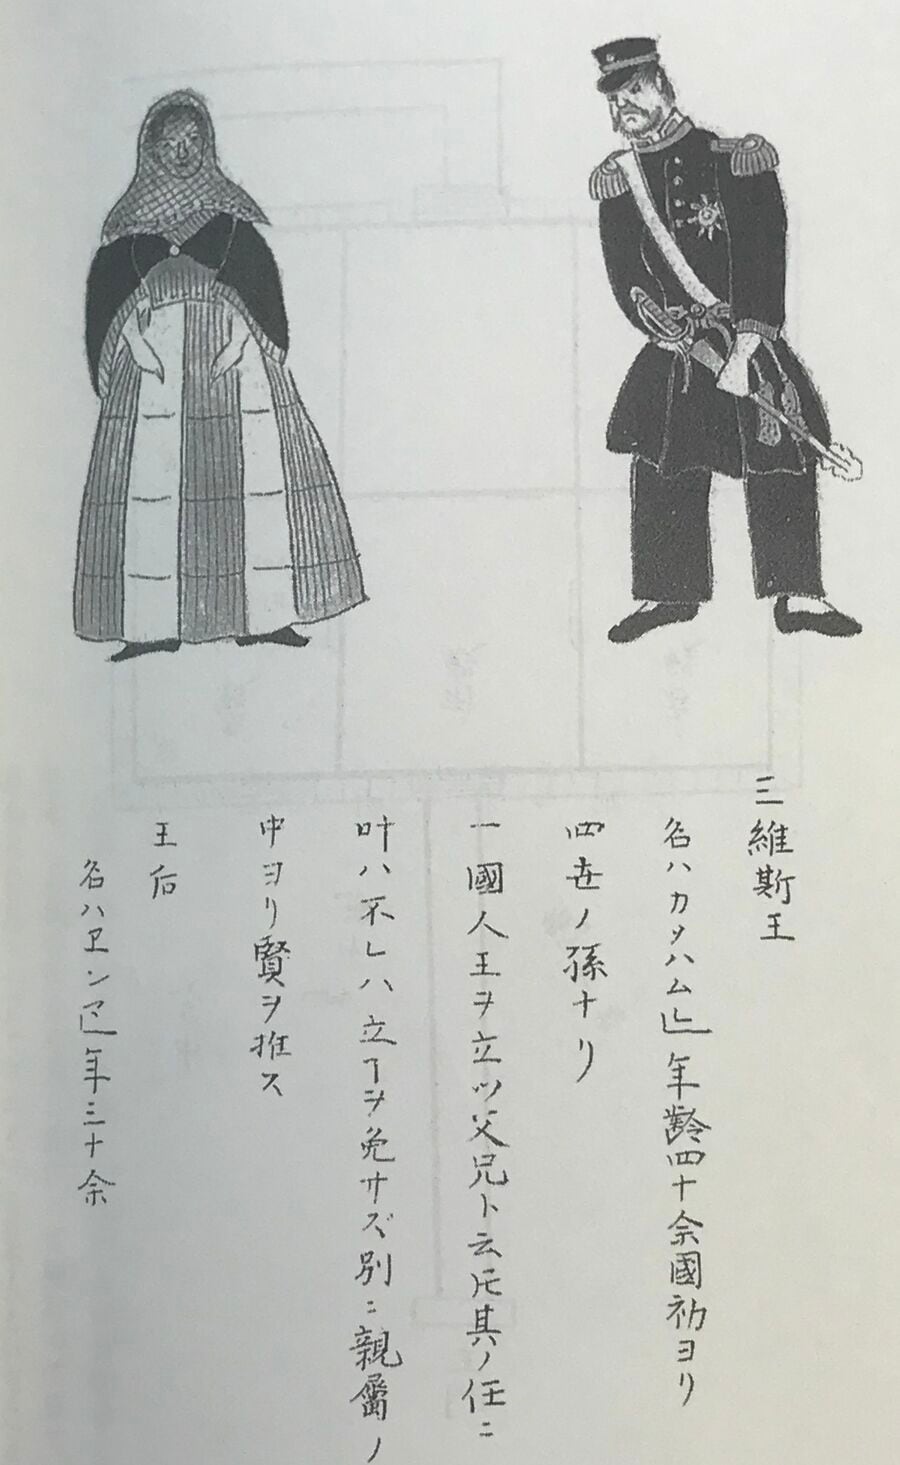 三維斯王
名ハカメハムヒ年齢四十余國初ヨリ
四世ノ孫ナリ
一國人王ヲ立ツ父兄ト云𪜈其ノ任ニ
叶ハ不レハ立ヿヲ免サズ別ニ親屬ノ
中ヨリ賢ヲ推ス
王后
名ハヱン 年三十余